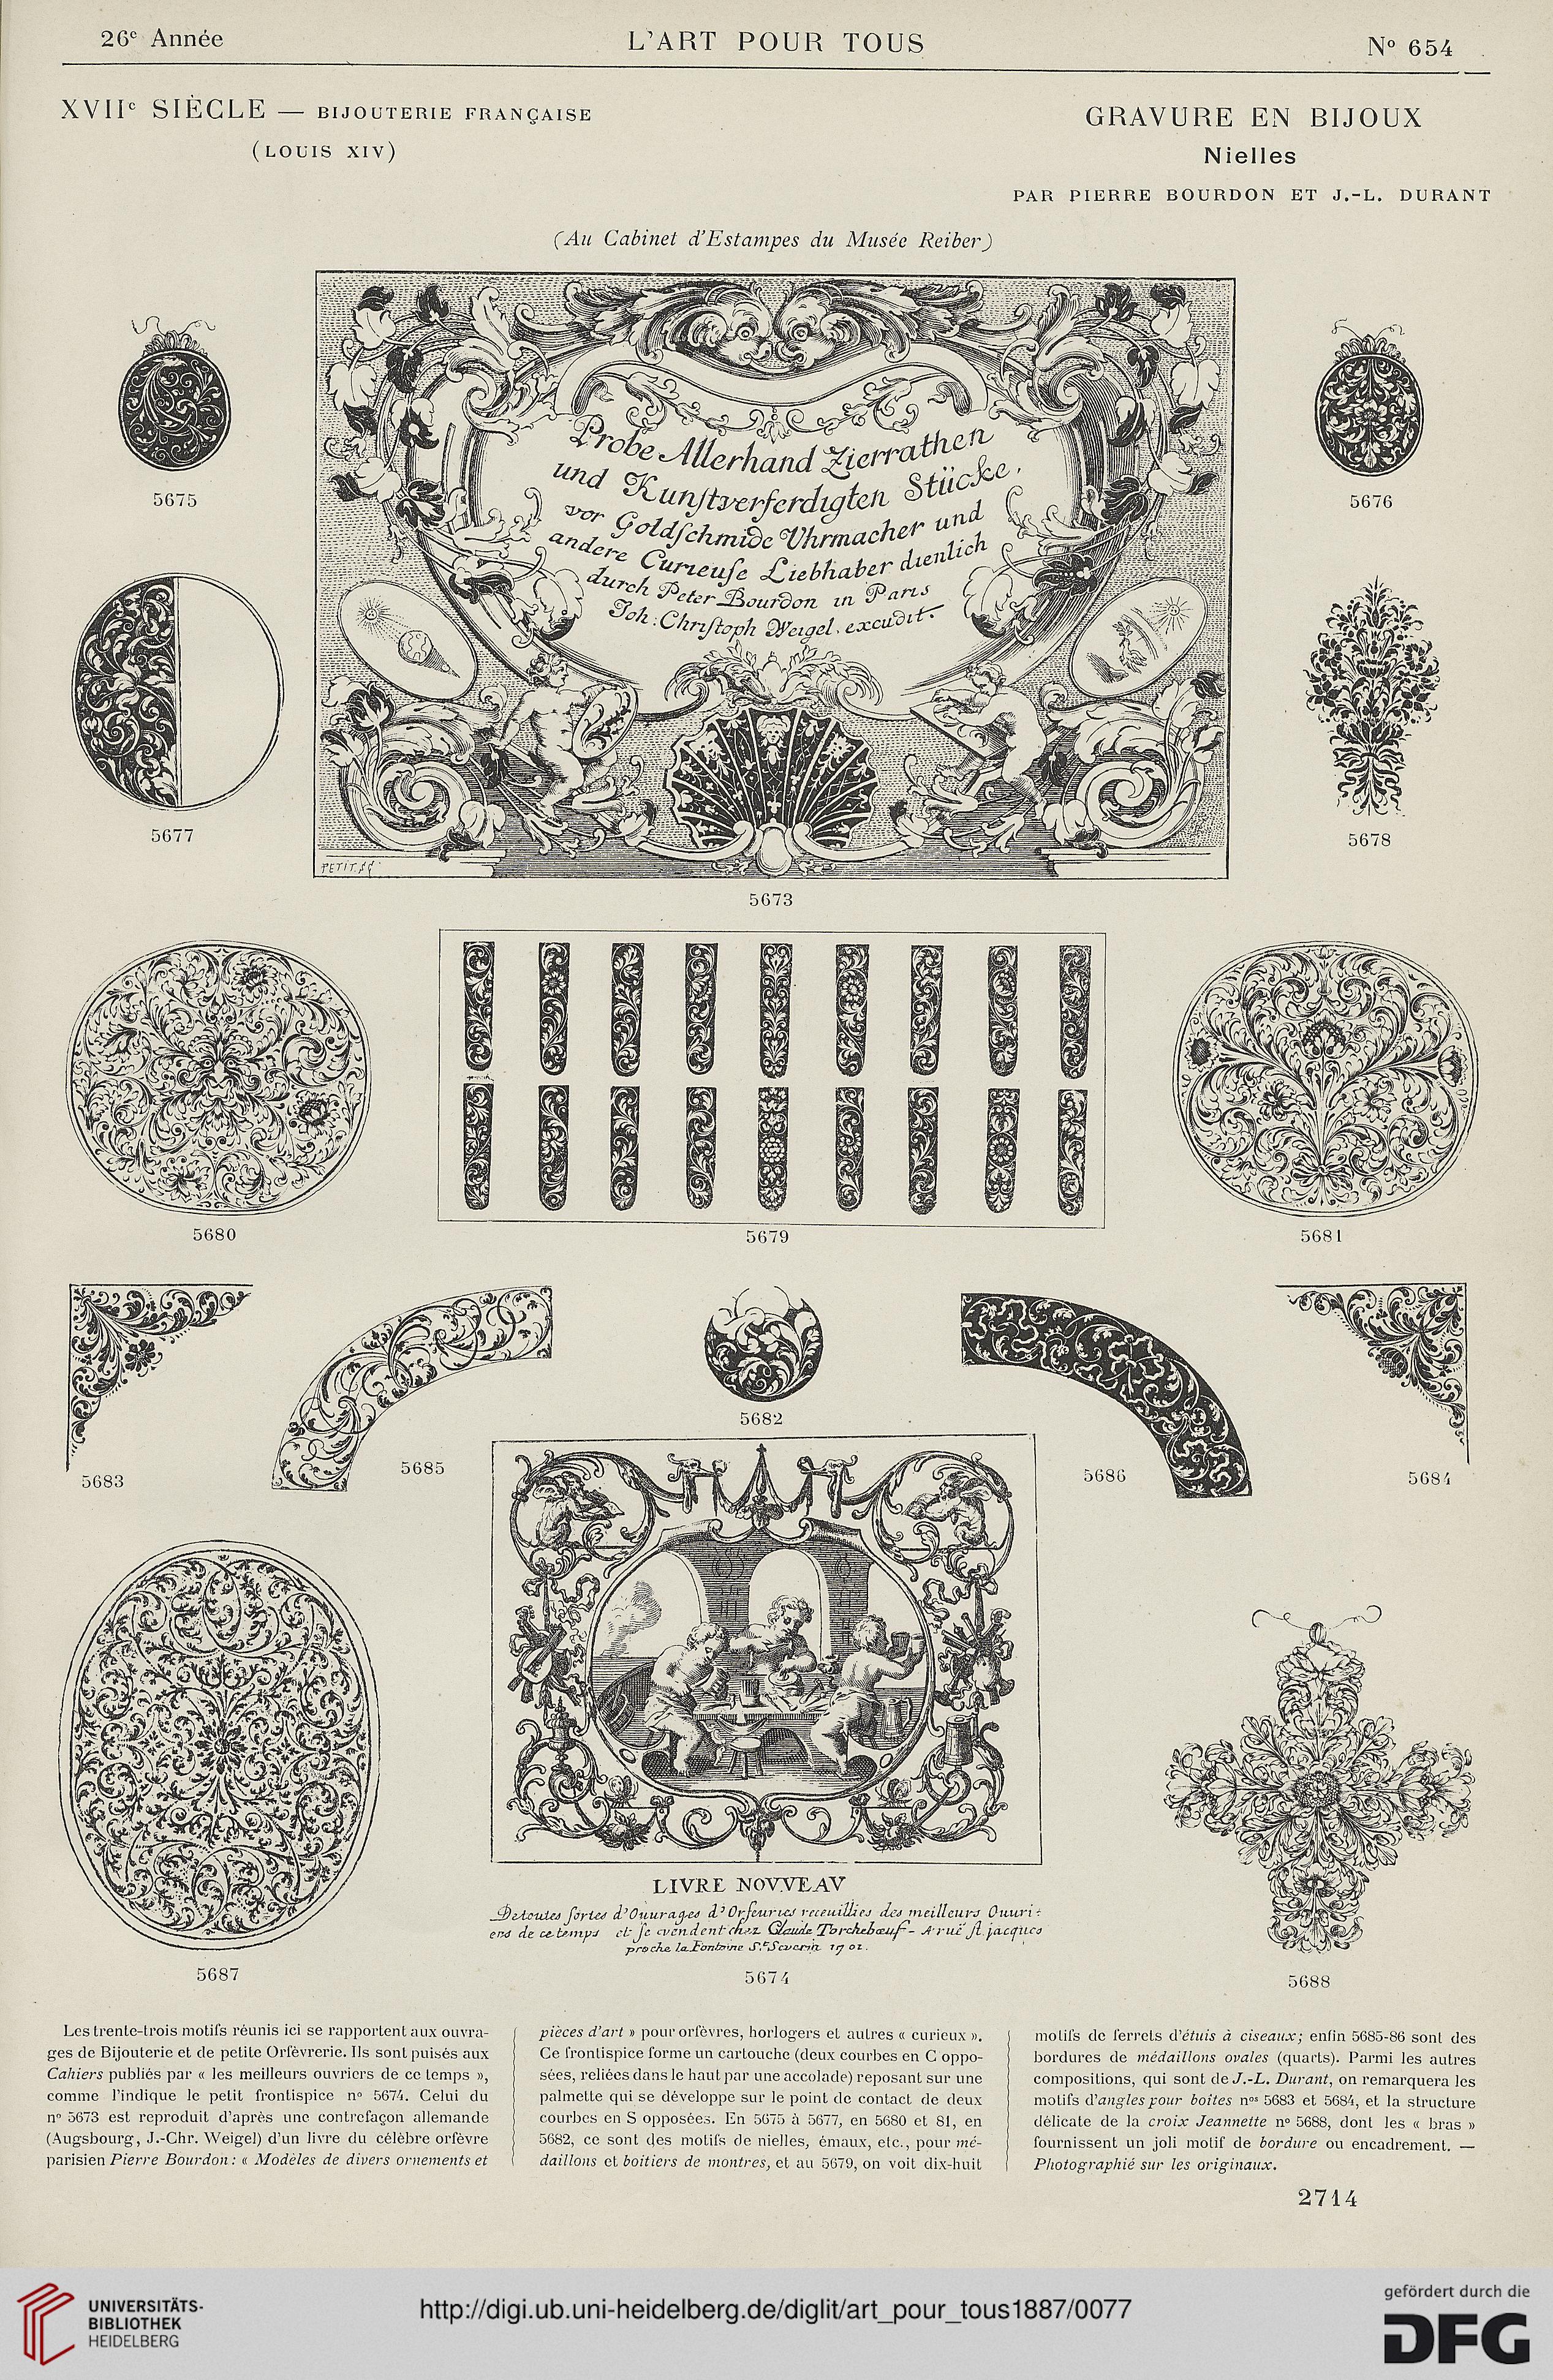 26e Année
L'ART POUR TOUS
N° 654
XVIIe SIÈCLE — BIJOUTERIE FRANÇAISE
(LOUIS XIV)
GRAVURE EN BIJOUX
Nielles
PAR PIERRE BOURDON ET J.-L. DURANT
(Au Cabinet d'Estampes du Musée Reiber)
Probe Allerhand Zierrathen
und Kunstverferdigten Stücke,
vor Goldschmide Uhrmacher und
andere Curieuse Liebhaber dienlich
durch Peter Bourdon in Paris
Joh: Christoph Weigel. excudit.
PETIT. SC.
5675
5676
5677
5678
5673
5680
5679
5681
5682
5683
5685
5686
5684
LIVRE NOVVEAV
De toutes sortes d'Ouurages d'Orfeuries receuillies des meilleurs Ouuri-
ers de ce temps et se vendent chez Glaude Torchebœuf - A rue st. jacques
proche la Fontaine St. Severin 1701.
5687
5674
5688
Les trente-trois motifs réunis ici se rapportent aux ouvra-
ges de Bijouterie et de petite Orfèvrerie. Ils sont puisés aux
Cahiers publiés par « les meilleurs ouvriers de ce temps »,
comme l'indique le petit frontispice n° 5674. Celui du
n° 5673 est reproduit d'après une contrefaçon allemande
(Augsbourg, J.-Chr. Weigel) d'un livre du célèbre orfèvre
parisien Pierre Bourdon : « Modèles de divers ornements et
pièces d'art » pour orfèvres, horlogers et autres « curieux ».
Ce frontispice forme un cartouche (deux courbes en C oppo-
sées, reliées dans le haut par une accolade) reposant sur une
palmette qui se développe sur le point de contact de deux
courbes en S opposées. En 5675 à 5677, en 5680 et 81, en
5682, ce sont des motifs de nielles, émaux, etc., pour mé-
daillons et boîtiers de montres, et au 5679, on voit dix-huit
motifs de ferrets d'étuis à ciseaux; enfin 5685-86 sont des
bordures de médaillons ovales (quarts). Parmi les autres
compositions, qui sont de J.-L. Durant, on remarquera les
motifs d'angles pour boîtes nos 5683 et 5684, et la structure
délicate de la croix Jeannette n° 5688, dont les « bras »
fournissent un joli motif de bordure ou encadrement. —
Photographié sur les originaux.
2714
UNIVERSITÄTS-
BIBLIOTHEK
HEIDELBERG
http://digi.ub.uni-heidelberg.de/diglit/art_pour_tous1887/0077
gefördert durch die
DFG